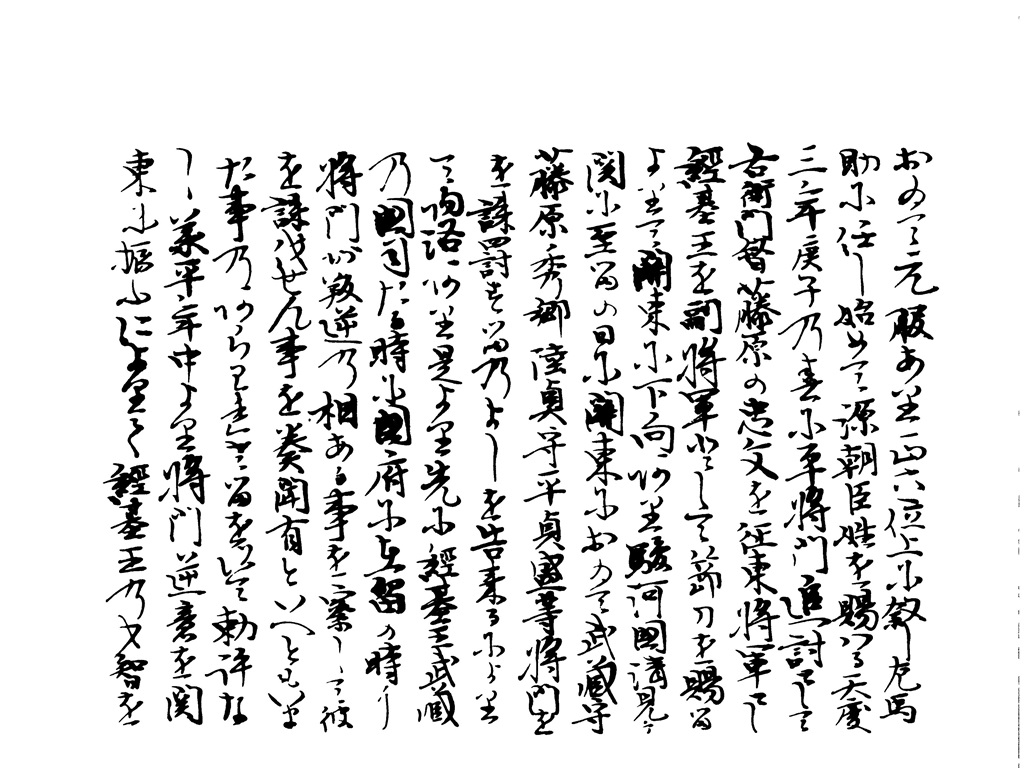 おゐて元服あり正六位上に叙し左馬
助に任し始めて源朝臣姓を賜はる天慶
三年庚子乃春に平将門追討として
右衛門督藤原の忠文を征東将軍とし
経基王を副将軍として節刀を賜る
よりて関東に下向あり駿河国清見
関に至るの日に関東におゐて武蔵守
藤原秀郷陸奥守平貞盛等将門を
を誅罰するのよしを告来るによりて
帰洛あり是より先に経基王武蔵
乃国司たる時に国府に在留の時
将門が叛逆乃相ある事を察して彼
を誅伐せん事を奏聞有といへともいま
た事乃あらはれさるを以て勅許な
し承平年中より将門逆意を関
東に振ふによりて経基王乃才智を